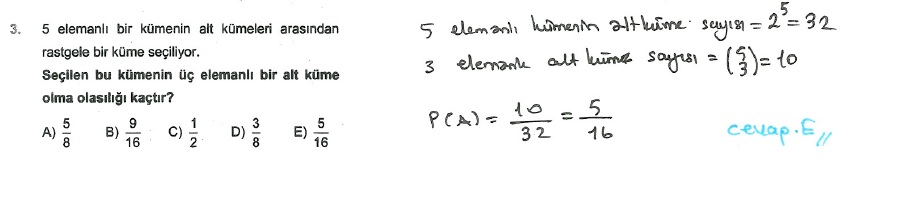 3. 5 elemanlı bir kümenin alt kümeleri arasından
rastgele bir küme seçiliyor.
Seçilen bu kümenin üç elemanlı bir alt küme
olma olasılığı kaçtır?
A) 5/8 B) 9/16 C) 1/2 D) 3/8 E) 5/16
5 elemanlı kümenin altküme sayısı = 2^5 = 32
3 elemanlı alt küme sayısı = (5 3) = 10
P(A) = 10/32 = 5/16
cevap.E //